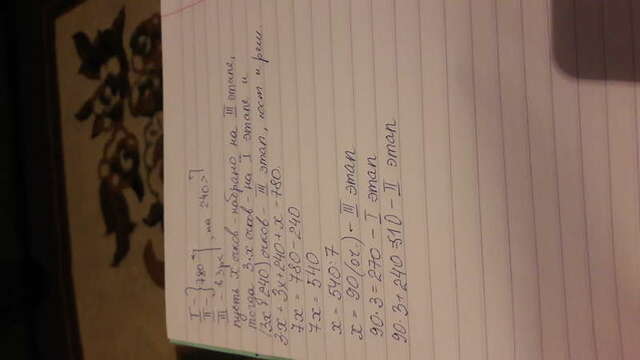 I -
II - 780
III - в 3 р <, на 240 >
пусть x очков - набрано на III этапе,
тогда 3·x очков - на I этапе и
(3x+240) очков - III этап, сост и реш.
3·x + 3x+240+x = 780.
7x = 780 - 240
7x = 540
x = 540:7
x = 90 (оч.) - III этап
90·3 = 270 - I этап
90·3 + 240 = 510 - II этап